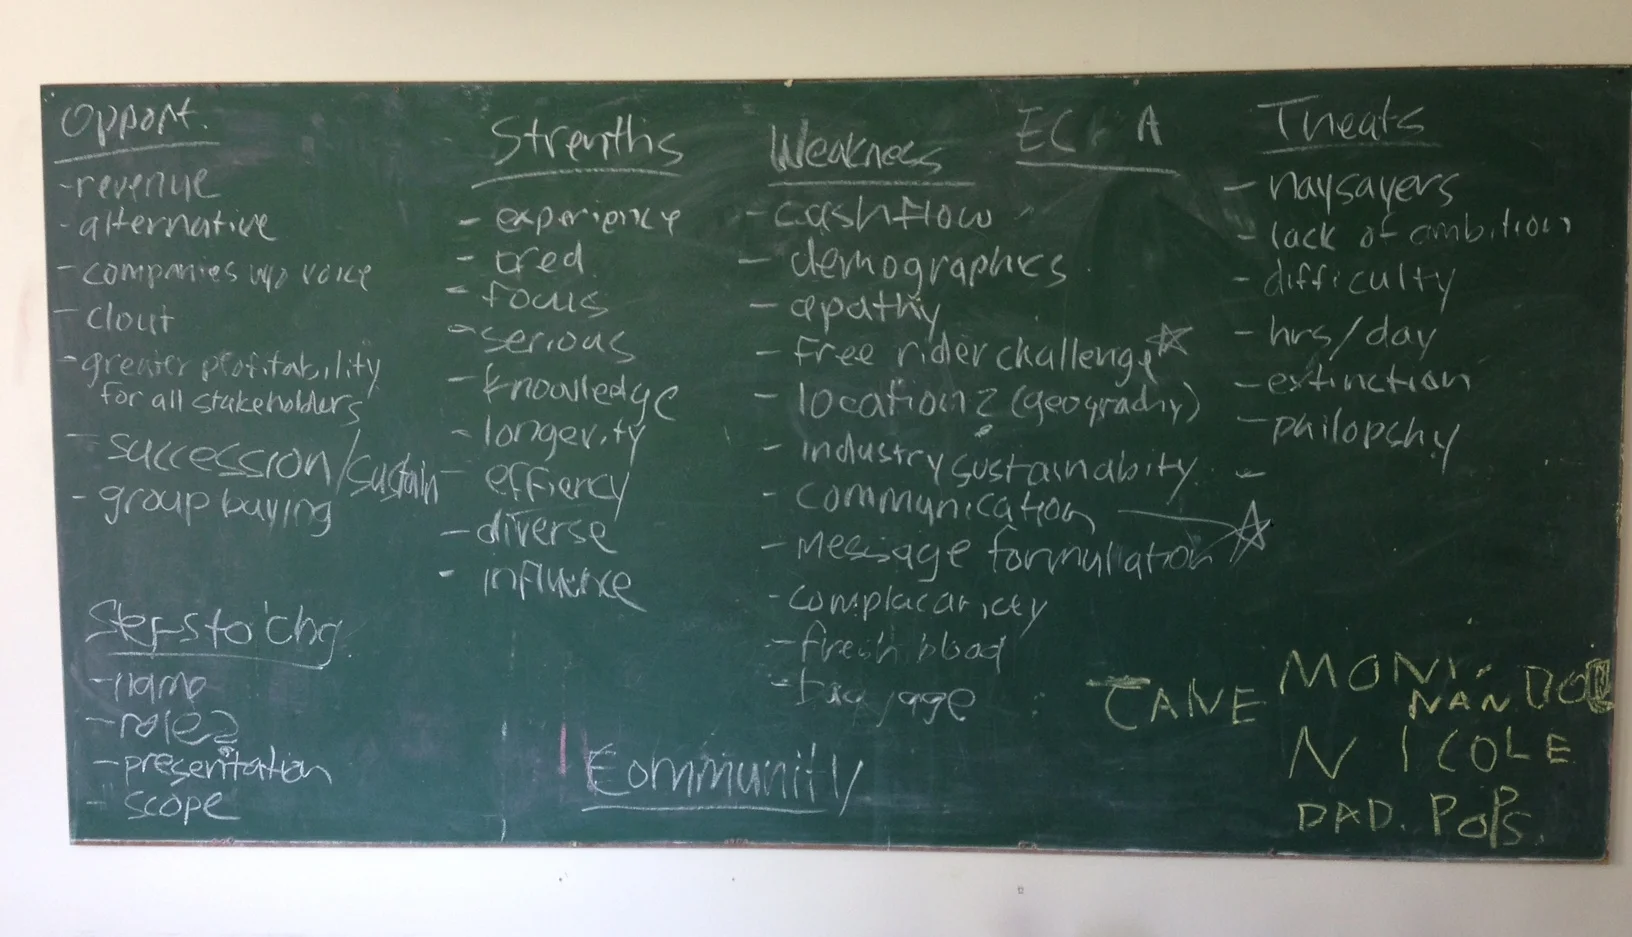 Opport.
-revenue
-alternative
-companies w/o voice
-clout
-greater profitability
for all stakeholders
- succession/sustain
-group buying
Steps to chg.
-name
-role?
-presentation
-scope
Strenths
- experience
- cred
- focus
- serious
- knowledge
- longevity
- effiency
- diverse
- influence
Community
Weakness
- cashflow
- demographics
- apathy
- free rider challenge
- location? (geography)
- industry sustainabity
- communication
- message formuliation
- fresh blood
- baggage
EC A
Theats
- naysayers
- lack of ambition
- difficulty
- hrs/day
- extinction
- philopshy
-
MONI.
NAN.
NICOLE
DAD. POPS.